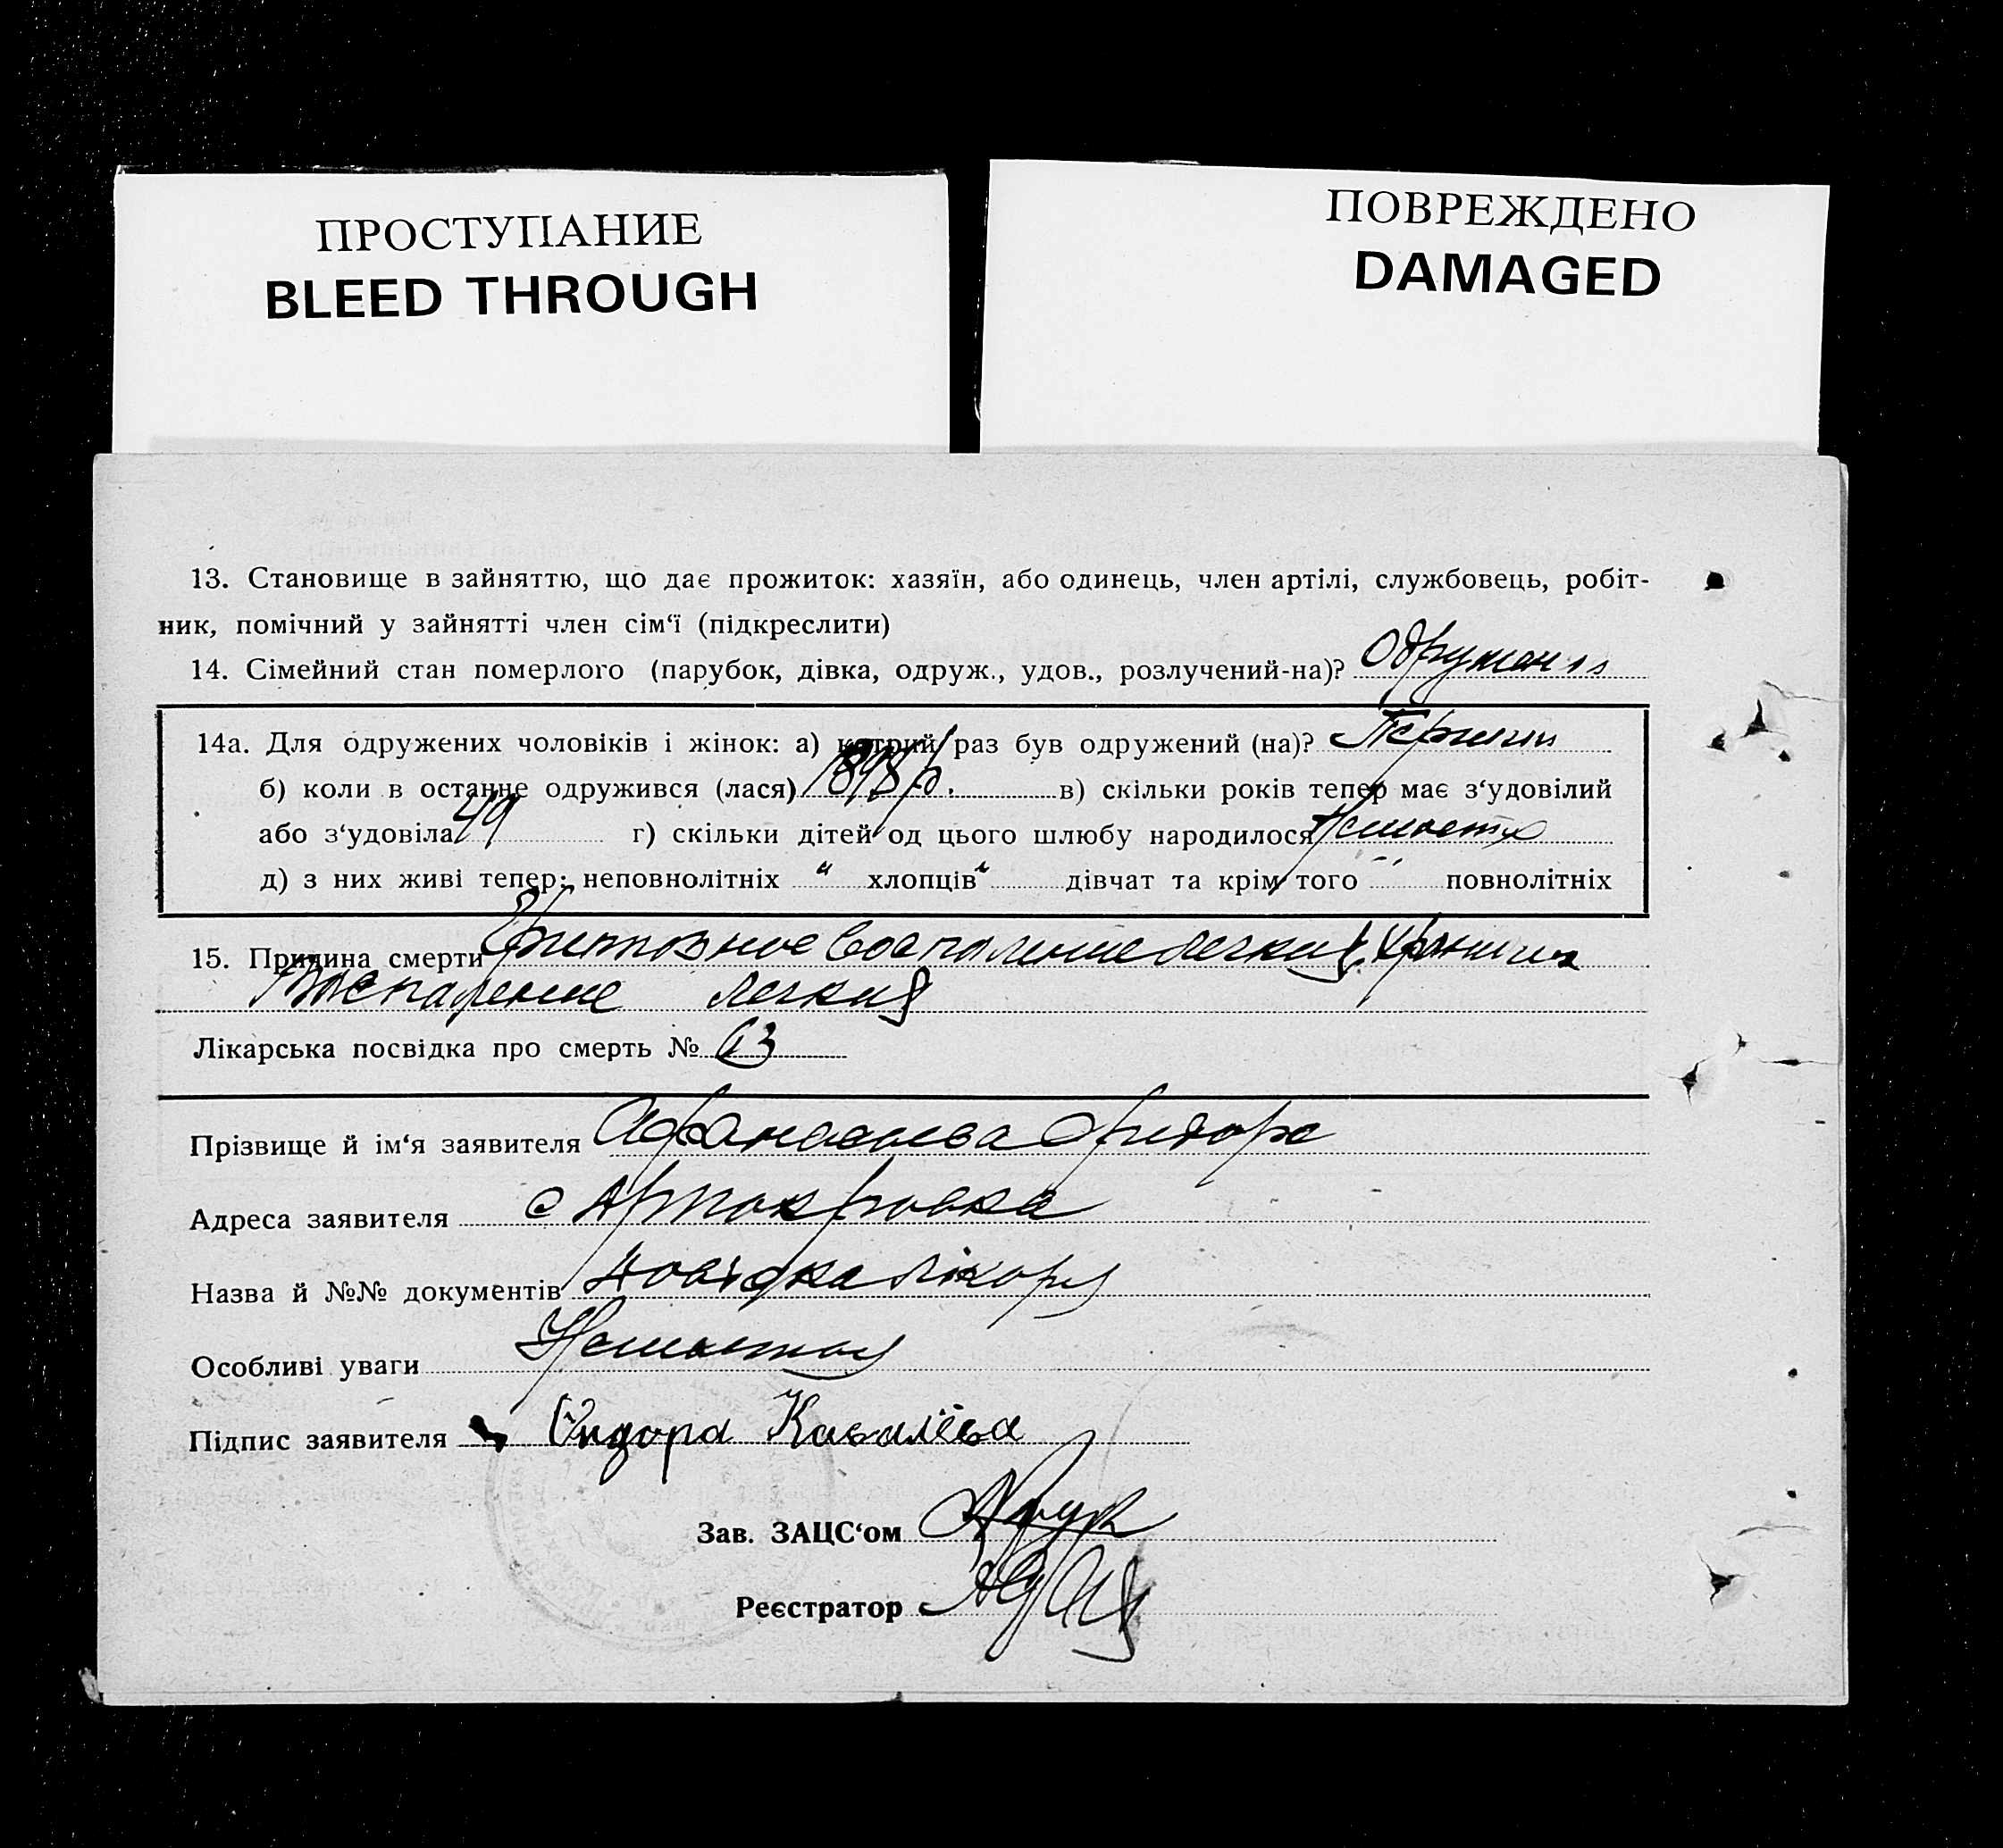 ПРОСТУПАНИЕ
BLEED THROUGH
ПОВРЕЖДЕНО
DAMAGED
13. Становище в зайняттю, що дає прожиток: хазяїн, або одинець, член артілі, службовець, робіт-
ник, помічний у зайнятті член сім‘ї (підкреслити)
14. Сімейний стан померлого (парубок, дівка, одруж., удов., розлучений-на)?
14а. Для одружених чоловіків і жінок: а) котрий раз був одружений (на)?
б) коли в останнє одружився (лася) 1898 р. в) скільки років тепер має з‘удовілий
або з‘удовіла 49 г) скільки дітей од цього шлюбу народилося
д) з них живі тепер: неповнолітніх " хлопців " дівчат та крім того " повнолітніх
15. Причина смерти воспаление легких,
Воспаление легких
Лікарська посвідка про смерть № 63
Прізвище й ім‘я заявителя
Адреса заявителя с
Назва й №№ документів Довідка лікаря
Особливі уваги
Підпис заявителя
Зав. ЗАЦС‘ом
Реєстратор